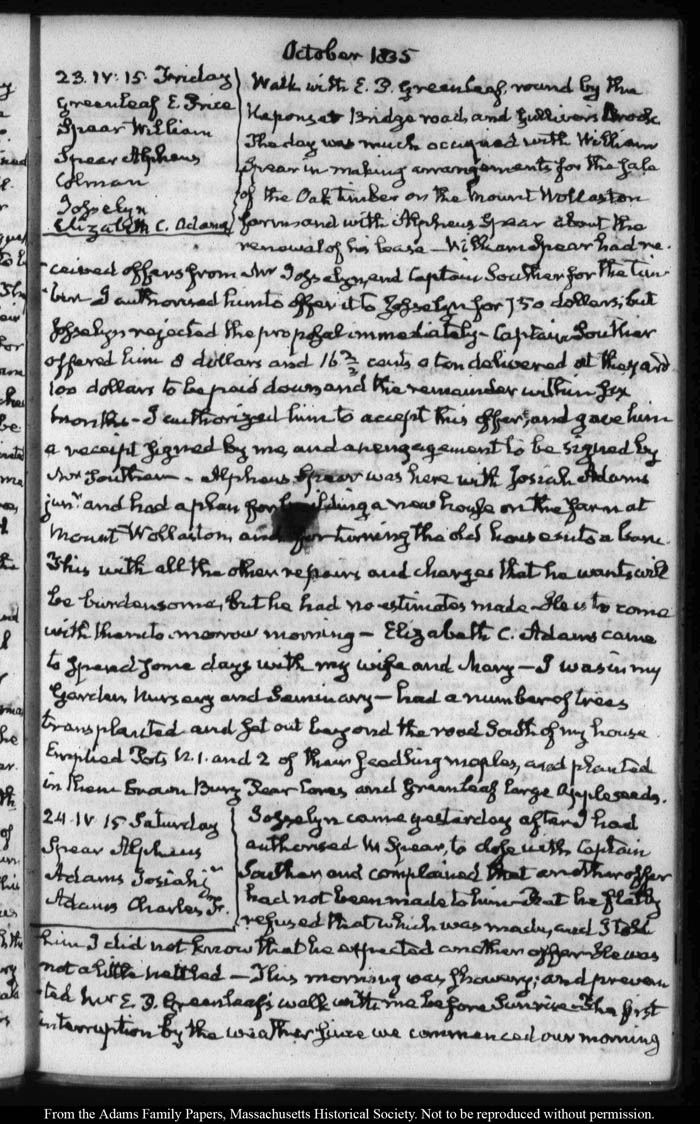 October 1835
23. IV: 15. Friday
Greenleaf E. Price
Spear William
Spear Alpheus
Colman
Josselyn
Elizabeth C. Adams
Walk with E. P. Greenleaf, round by the
Neponset Bridge road, and Gullivers Brook
The day was much occupied with William
Spear in making arrangements for the sale
of the Oak timber on the Mount Wollaston
farm and with Alpheus Spear about the
renewal of his lease — William Spear had re-
-ceived offers from Mr Josselyn, and Captain Souther for the tim
-ber I authorised him to offer it to Josselyn for 750 dollars; but
Josselyn rejected the proposal immediately — Captain Souther
offered him 8 dollars and 16 2/3 cents a ton delivered at the yard
100 dollars to be paid down and the remainder within six
months — I authorized him to accept this offer, and gave him
a receipt signed by me, and an engagement to be signed by
Mr Souther — Alpheus Spear was here with Josiah Adams
junr. and had a plan for building a new house on the farm at
Mount Wollaston, and for turning the old house into a barn.
This with all the other repairs and charges that he wants will
be burdensome, but he had no estimates made — He is to come
with them to-morrow morning — Elizabeth C. Adams came
to spend some days with my wife and Mary — I was in my
Garden Nursery and Seminary — had a number of trees
transplanted and set out beyond the road South of my house.
Emptied Pots N. 1. and 2 of their seedling maples, and planted
in them Brown Bury Pear cores and Greenleaf large Appleseeds.
24. IV 15 Saturday
Spear Alpheus
Adams Josiah jr
Adams Charles Fr.
Josselyn came yesterday after I had
authorised W Spear, to close with Captain
Souther and complained that another offer
had not been made to him — that he flatly
refused that which was made, and I told
him I did not know that he expected another offer — He was
not a little nettled — This morning was showery; and preven
-ted Mr E. P. Greenleaf's walk with me before Sunrise — The first
interruption by the weather since we commenced our morning
From the Adams Family Papers, Massachusetts Historical Society. Not to be reproduced without permission.